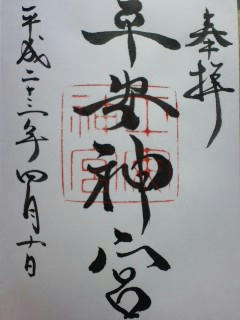 奉拝
平安神宮
平成二十三年四月十日